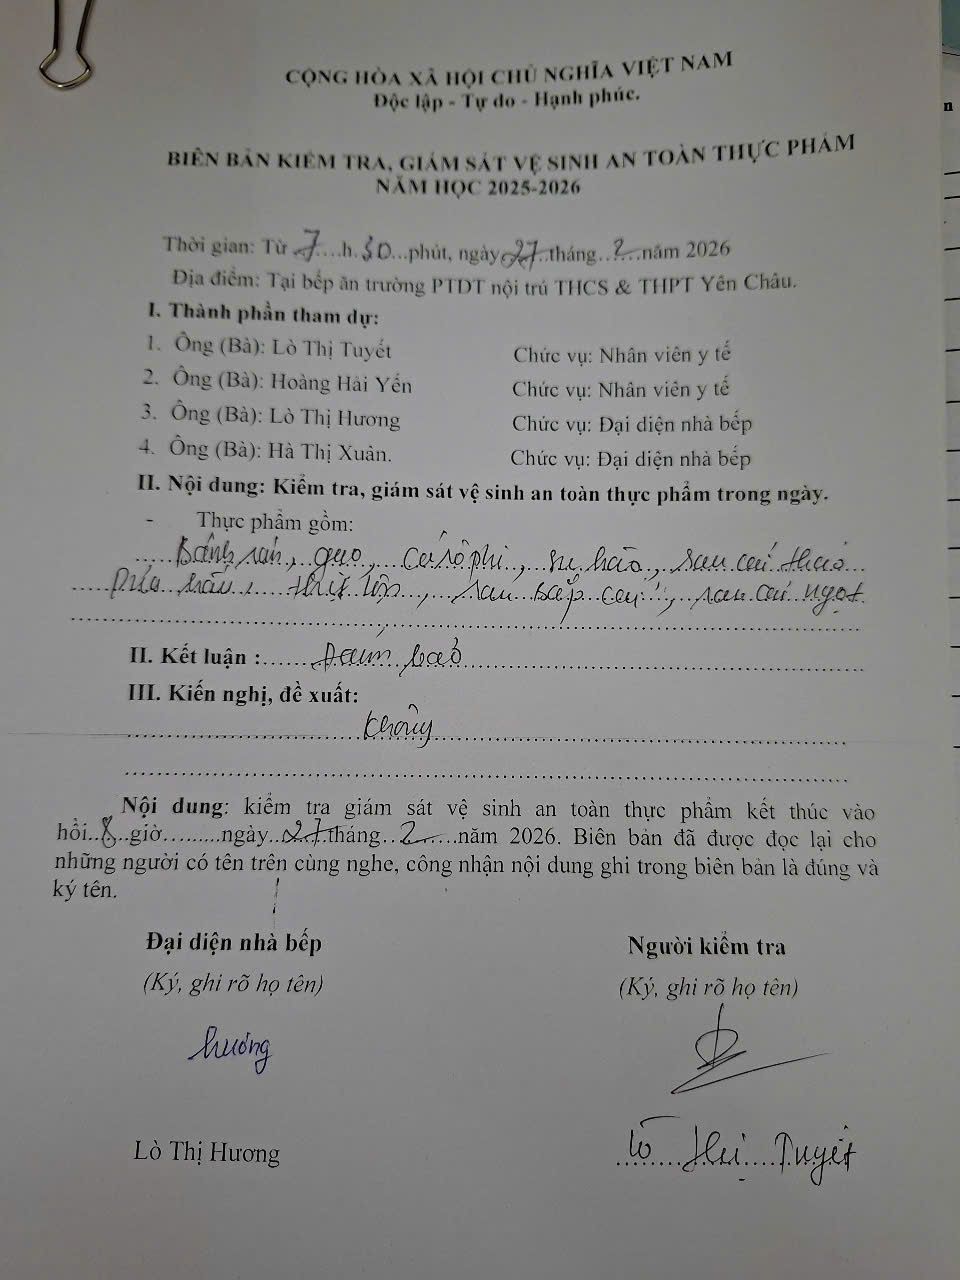 CỘNG HÒA XÃ HỘI CHỦ NGHĨA VIỆT NAM
Độc lập - Tự do - Hạnh phúc.
BIÊN BẢN KIỂM TRA, GIÁM SÁT VỆ SINH AN TOÀN THỰC PHẨM
NĂM HỌC 2025-2026
Thời gian: Từ 7 h 30 phút, ngày 27 tháng 2 năm 2026
Địa điểm: Tại bếp ăn trường PTDT nội trú THCS & THPT Yên Châu.
I. Thành phần tham dự:
1. Ông (Bà): Lò Thị Tuyết Chức vụ: Nhân viên y tế
2. Ông (Bà): Hoàng Hải Yến Chức vụ: Nhân viên y tế
3. Ông (Bà): Lò Thị Hương Chức vụ: Đại diện nhà bếp
4. Ông (Bà): Hà Thị Xuân. Chức vụ: Đại diện nhà bếp
II. Nội dung: Kiểm tra, giám sát vệ sinh an toàn thực phẩm trong ngày.
- Thực phẩm gồm:
Bánh rán, gạo, cá rô phi, su hào, rau cải thảo
Dưa hấu, thịt lợn, rau bắp cải, rau cải ngọt
II. Kết luận : Đảm bảo
III. Kiến nghị, đề xuất:
Không
Nội dung: kiểm tra giám sát vệ sinh an toàn thực phẩm kết thúc vào
hồi 8 giờ.........ngày 27 tháng 2 năm 2026. Biên bản đã được đọc lại cho
những người có tên trên cùng nghe, công nhận nội dung ghi trong biên bản là đúng và
ký tên.
Đại diện nhà bếp Người kiểm tra
(Ký, ghi rõ họ tên) (Ký, ghi rõ họ tên)
Hương
Lò Thị Hương Lò Thị Tuyết